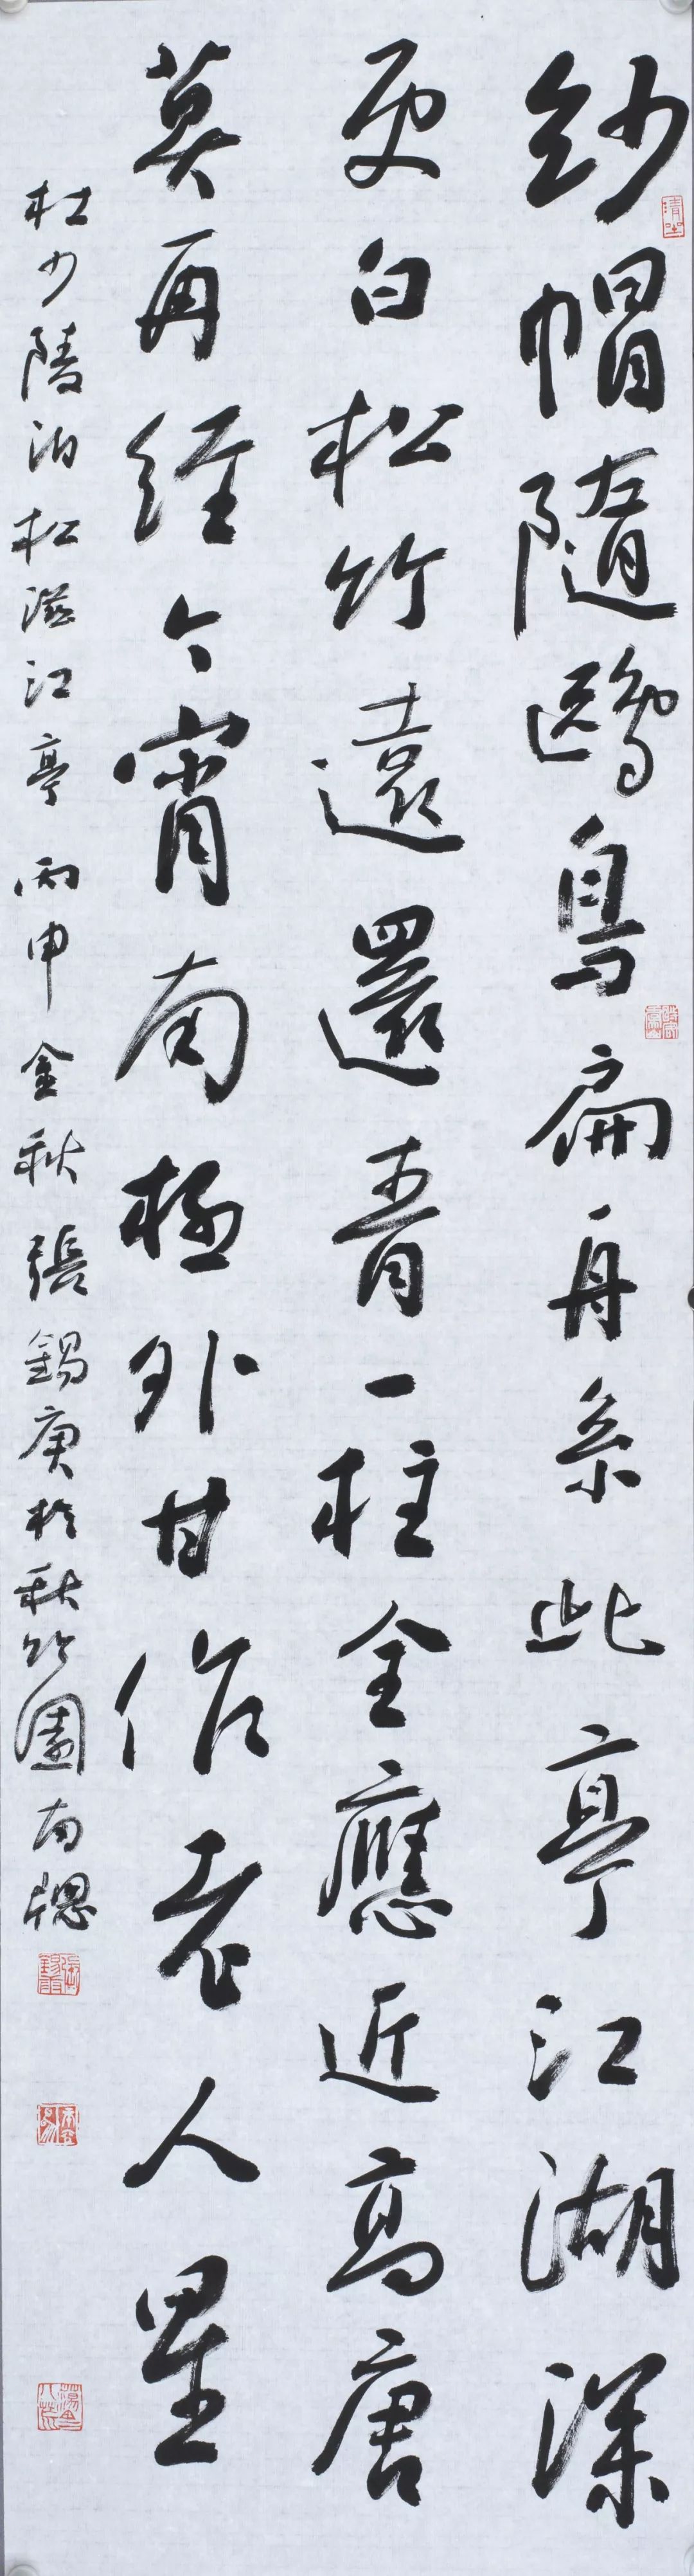 紗帽隨鷗鳥扁舟系此亭江湖深
更白松竹遠還青一柱全應近高唐
莫再經今宵南極外甘作老人星
杜少陵泊松滋江亭 丙申金秋張錫庚於秋竹園南牕